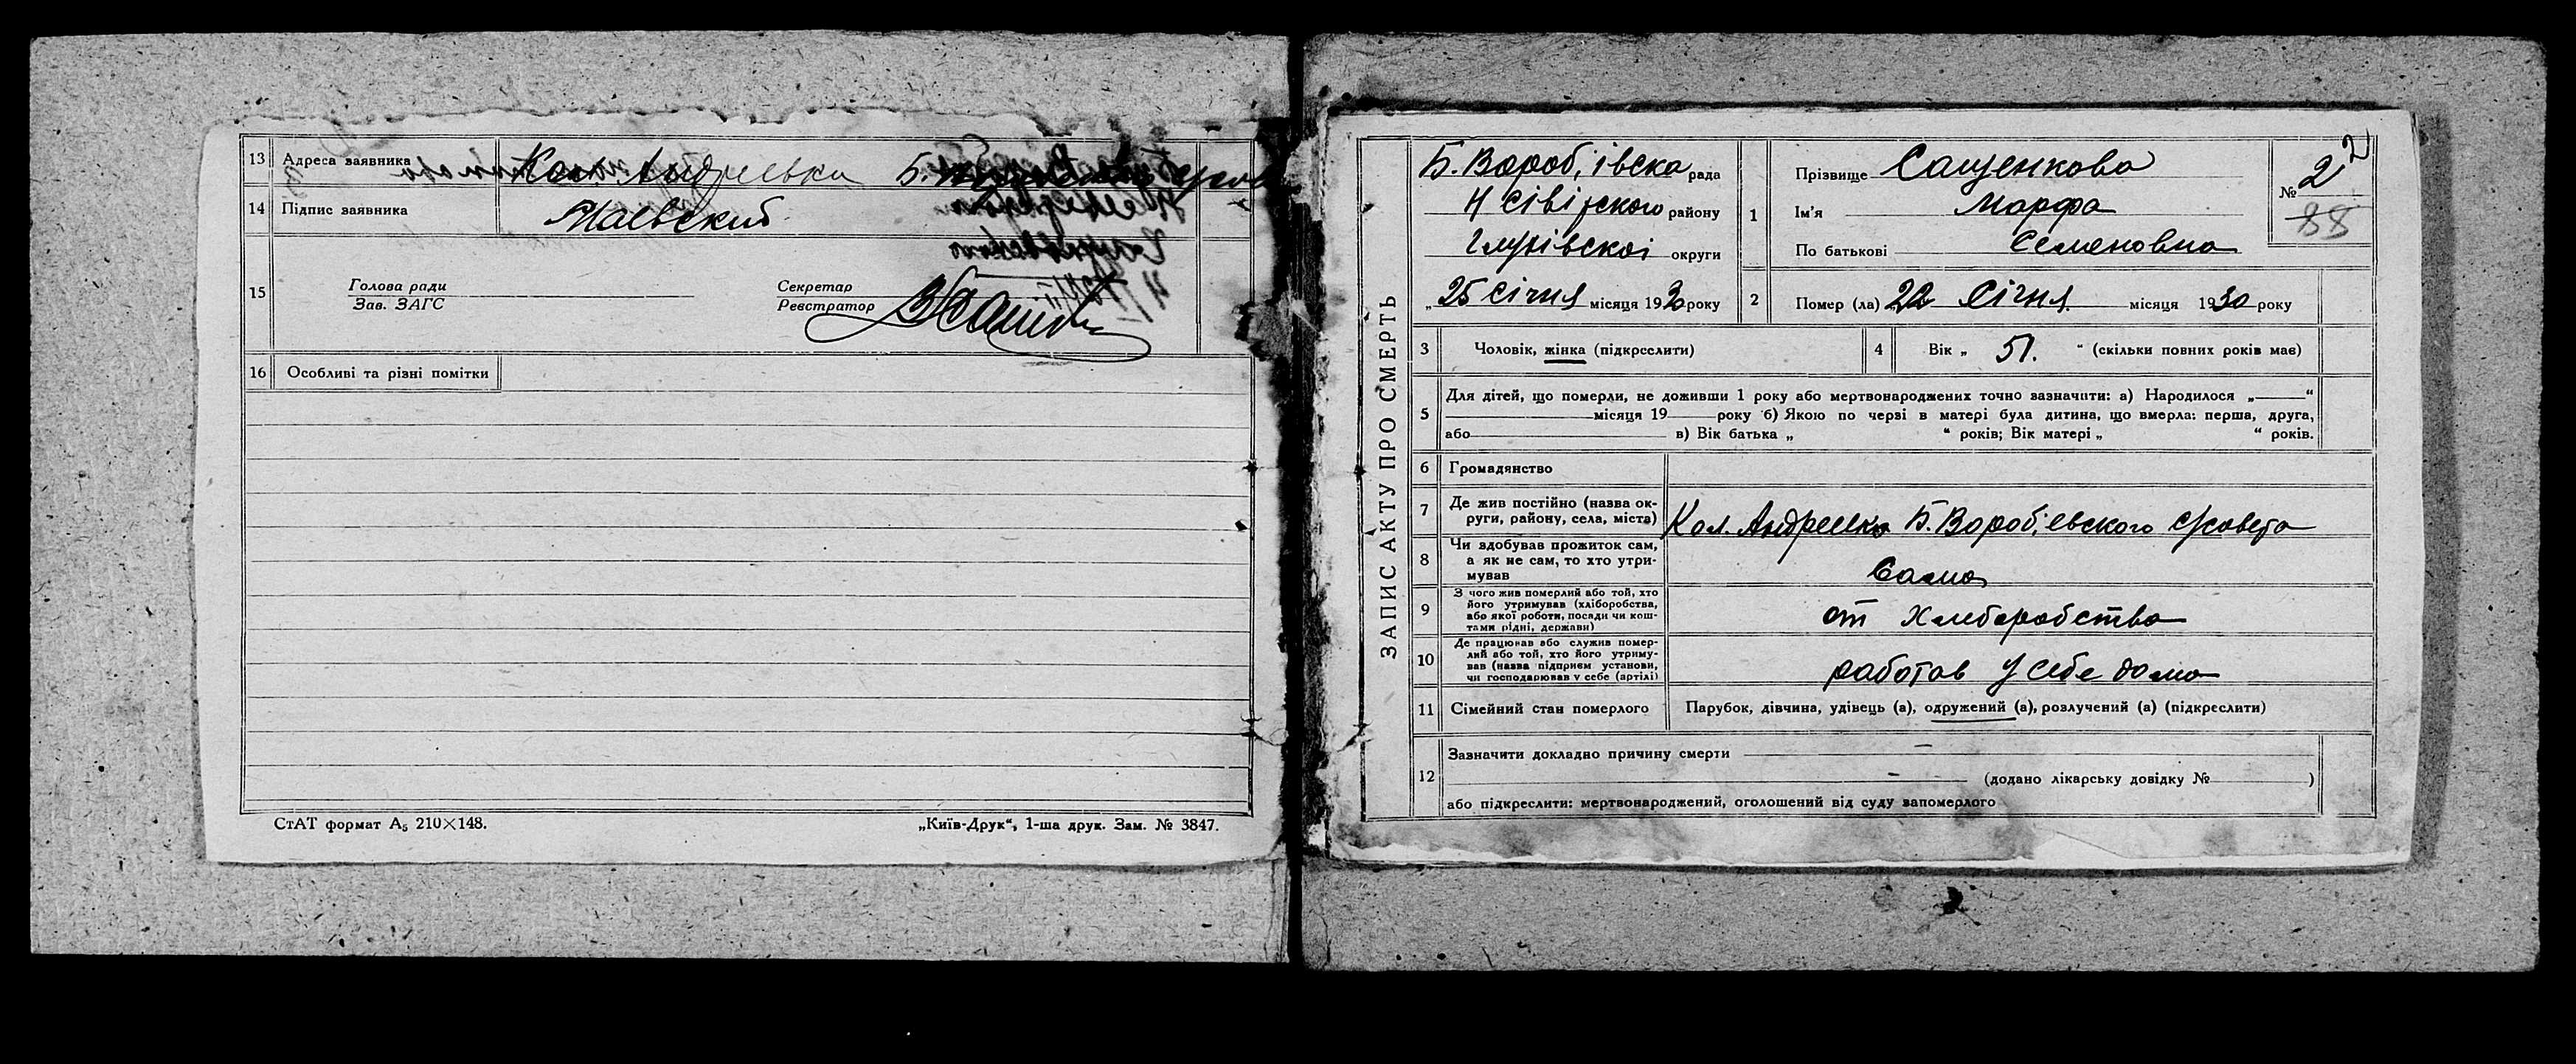 13 Адреса заявника Кол. Андреевка Б.
14 Підпис заявника Маевский
15 Голова ради
Зав. ЗАГС
Секретар
Реєстратор
16 Особливі та різні помітки
СтАТ формат А5 210×148.
„Київ-Друк“, 1-ша друк. Зам. № 3847.
ЗАПИС АКТУ ПРО СМЕРТЬ
Б. Вороб,івска рада
Н Сівірского району
Глухівскоі округи
„25 Січня місяця 1930 року
1 Прізвище Сащенкова
Ім'я Марфа
По батькові Семеновна
№ 2
88
2
2 Помер (ла) 22 Січня місяця 1930 року
3 Чоловік, жінка (підкреслити)
4 Вік „ 51. “ (скільки повних років має)
5 Для дітей, що померли, не доживши 1 року або мертвонароджених точно зазначити: а) Народилося „ “
місяця 19 року б) Якою по черзі в матері була дитина, що вмерла: перша, друга,
або в) Вік батька „ “ років; Вік матері „ “ років.
6 Громадянство
7 Де жив постійно (назва ок-
руги, району, села, міста) Кол. Андреевка Б. Вороб,евского с/совета
8 Чи здобував прожиток сам,
а як не сам, то хто утри-
мував Сама
9 З чого жив померлий або той, хто
його утримував (хліборобства,
або якої роботи, посади чи кош-
тами рідні, держави) от Хлеборобства
10 Де працював або служив помер-
лий або той, хто його утриму-
вав (назва підприєм установи,
чи господарював у себе (артілі) работав у себе дома
11 Сімейний стан померлого Парубок, дівчина, удівець (а), одружений (а), розлучений (а) (підкреслити)
12 Зазначити докладно причину смерти —
— (додано лікарську довідку № )
або підкреслити: мертвонароджений, оголошений від суду запомерлого